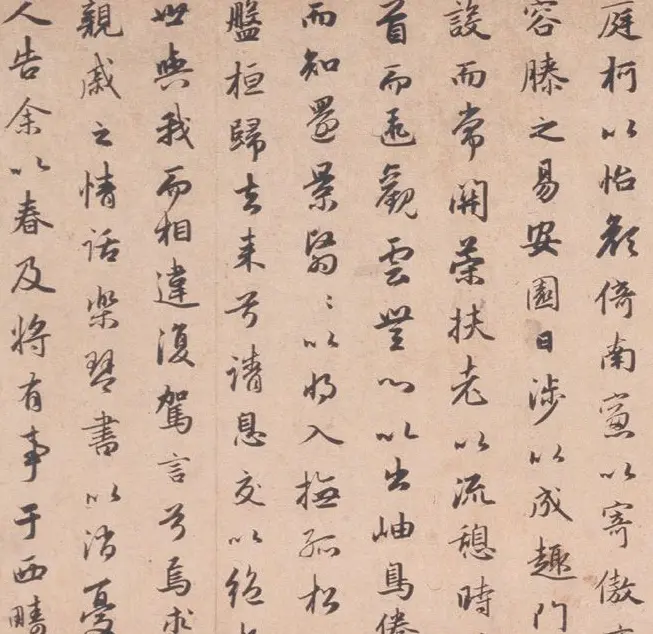 庭柯以怡顏倚南窓以寄傲
容膝之易安園日涉以成趣門
設而常關策扶老以流憩時
首而遐觀雲無心以出岫鳥倦
而知還景翳〻以將入撫孤松
盤桓歸去来兮請息交以絕
世與我而相違復駕言兮焉求
親戚之情話樂琴書以消憂
人告余以春及將有事于西疇